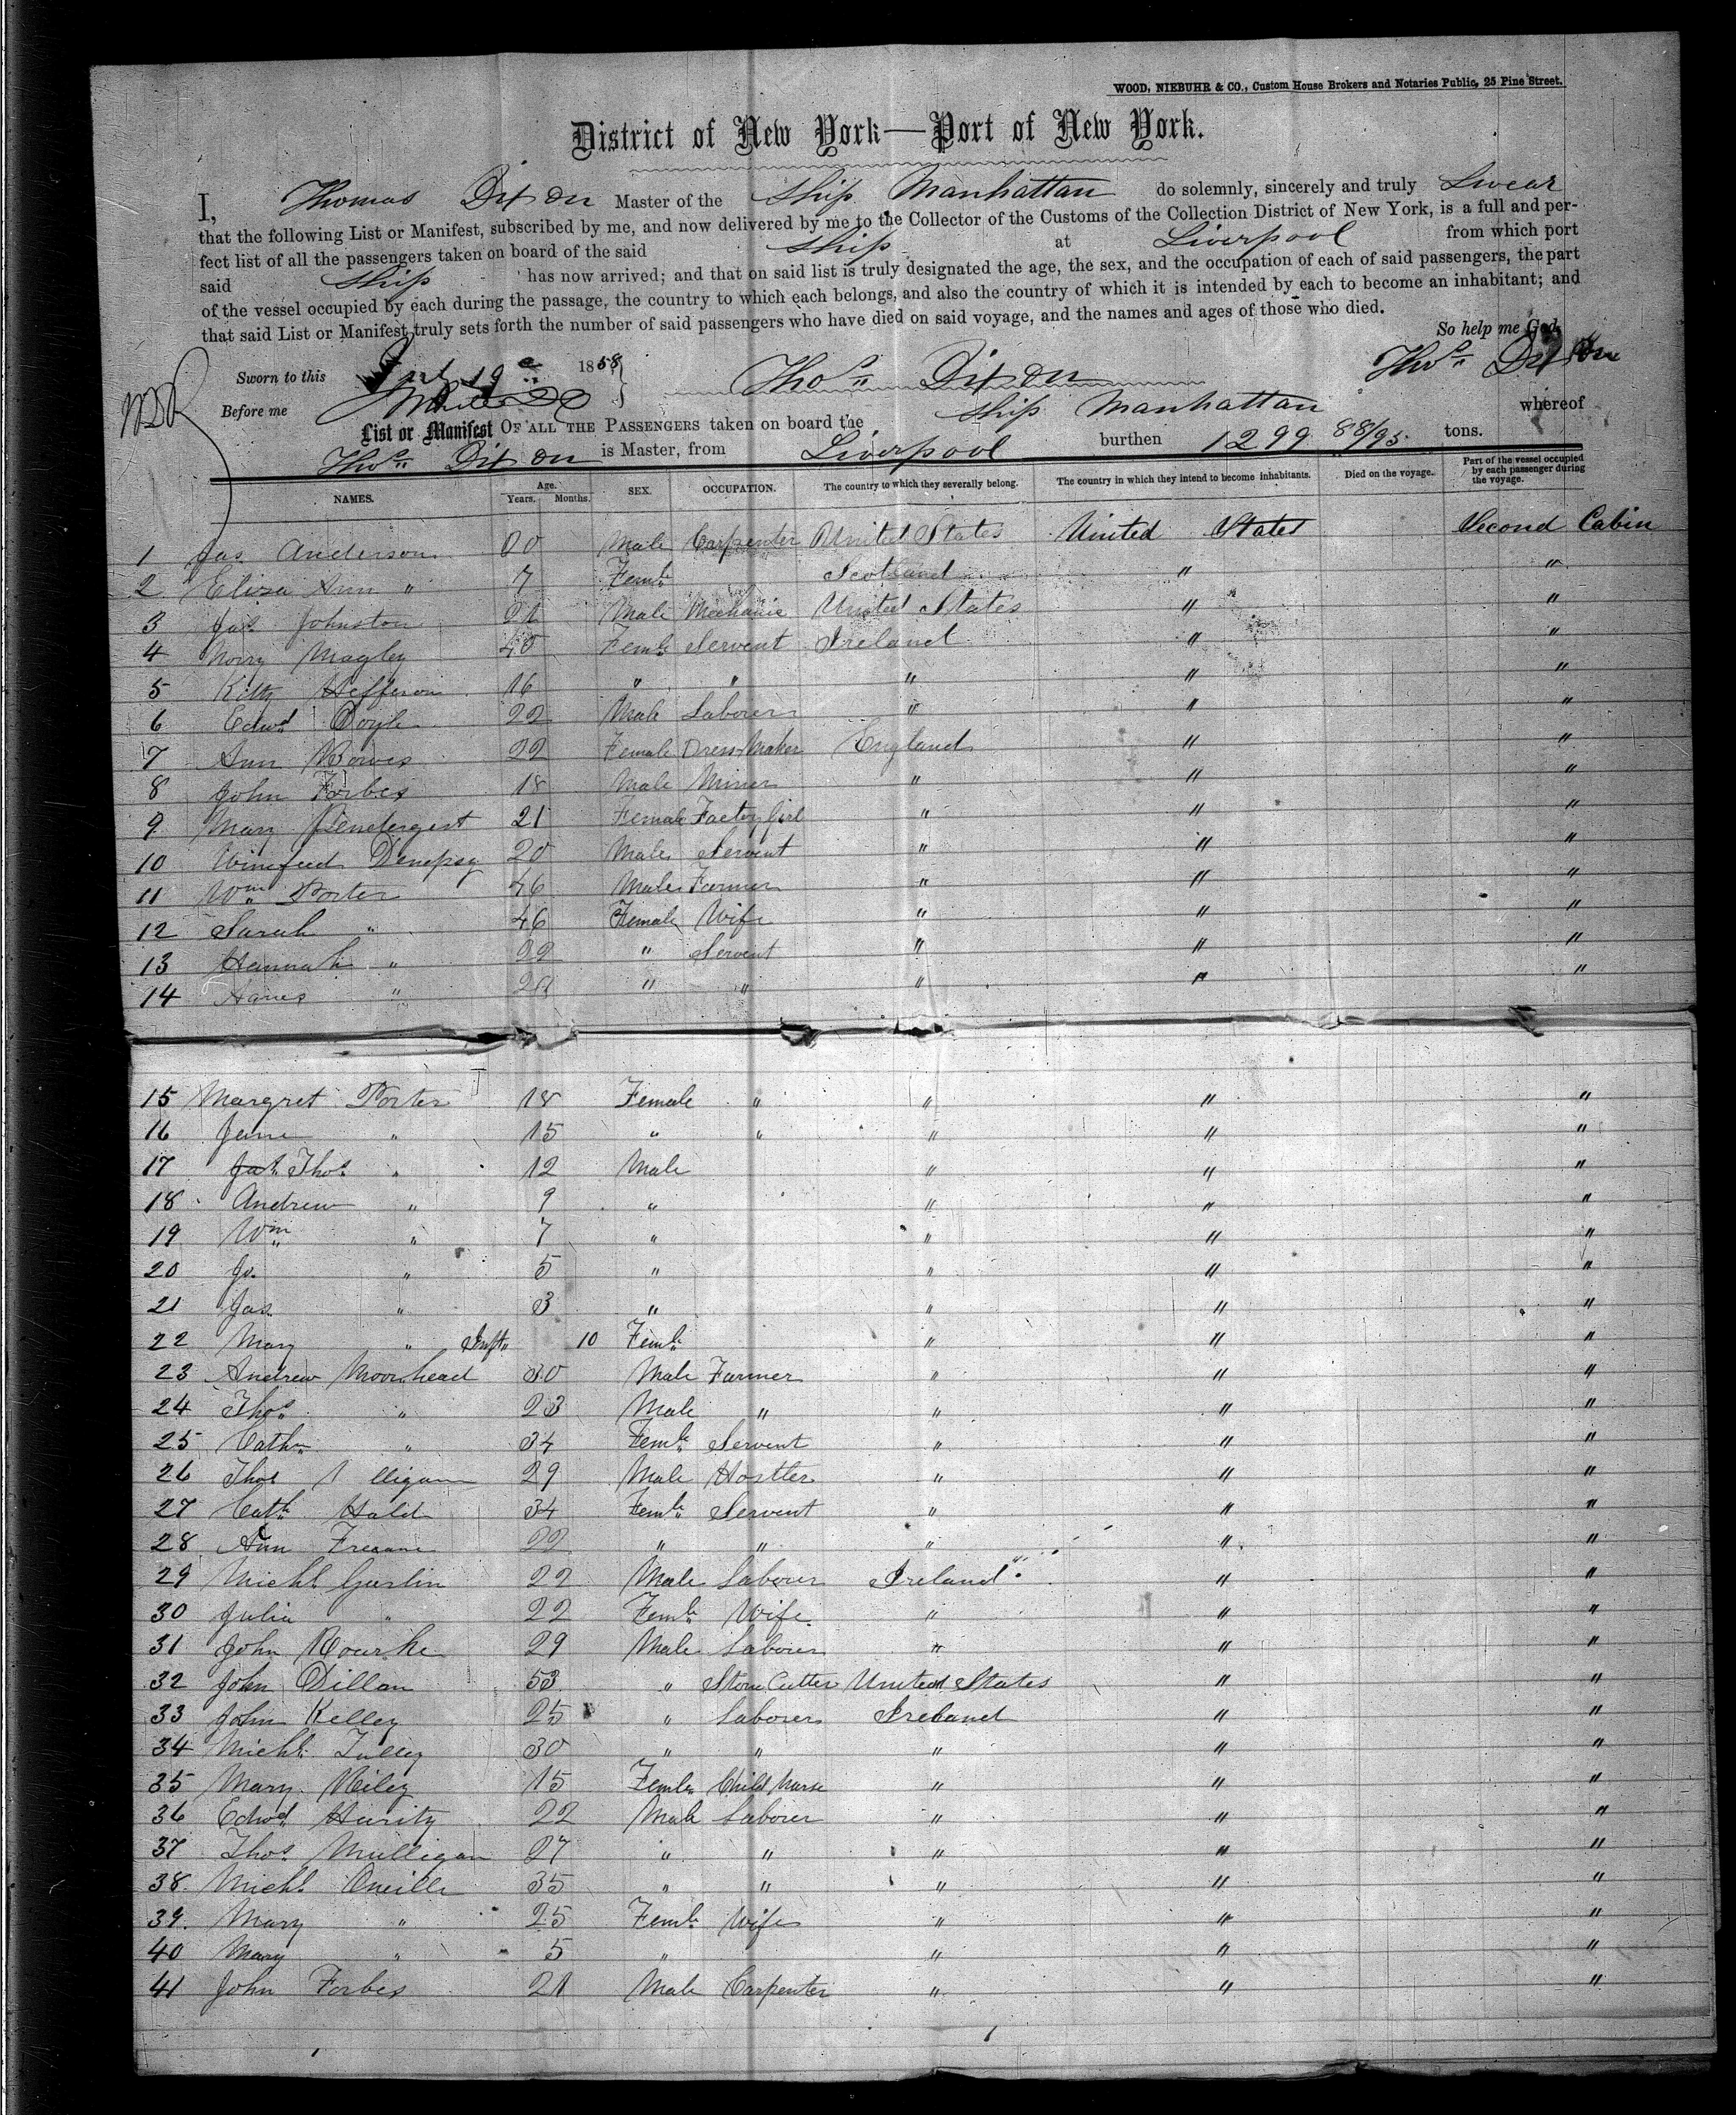 WOOD, NIEBUHR & CO., Custom House Brokers and Notaries Public, 25 Pine Street.
District of New York—Port of New York.
I, Thomas Dixon Master of the Ship Manhattan do solemnly, sincerely and truly Swear
that the following List or Manifest, subscribed by me, and now delivered by me to the Collector of the Customs of the Collection District of New York, is a full and per-
fect list of all the passengers taken on board of the said Ship at Liverpool from which port
said Ship has now arrived; and that on said list is truly designated the age, the sex, and the occupation of each of said passengers, the part
of the vessel occupied by each during the passage, the country to which each belongs, and also the country of which it is intended by each to become an inhabitant; and
that said List or Manifest truly sets forth the number of said passengers who have died on said voyage, and the names and ages of those who died.
So help me God.
Sworn to this 19 1858 Thos Dixon Thos Dixon
Before me
List or Manifest OF ALL THE PASSENGERS taken on board the Ship Manhattan whereof
Thos Dixon is Master, from Liverpool burthen 1299 88/95 tons.
NAMES. Age. Years. Months. SEX. OCCUPATION. The country to which they severally belong. The country in which they intend to become inhabitants. Died on the voyage. Part of the vessel occupied by each passenger during the voyage.
1 Jas Anderson Male Carpenter United States United States Second Cabin
2 Eliza Ann " 7 Femle Scotland " "
3 Jas Johnston Male Mechanic United States " "
4 Magley 40 Femle Servent Ireland " "
5 Kitty Hefferon 16 " " " " "
6 Edwd Doyle 22 Male Laborer " " "
7 Ann 22 Female Dress Maker England " "
8 John Forbes 18 Male Miner " " "
9 Mary Pendergest 21 Female Factory Girl " " "
10 Winefred Dempsy 20 Male Servent " " "
11 Wm Porter 46 Male Farmer " " "
12 Sarah " 46 Female Wife " " "
13 Hannah " 22 " Servent " " "
14 " " " " " "
15 Margret Porter 18 Female " " " "
16 Jane " 15 " " " " "
17 Thos " 12 Male " " "
18 Andrew " 9 " " " "
19 Wm " 7 " " " "
20 Jo. " 5 " " " "
21 Jas " 3 " " " "
22 Mary " Inft 10 Femle " " "
23 Andrew Moorhead 30 Male Farmer " " "
24 Thos " 23 Male " " " "
25 Cathn " 34 Femle Servent " " "
26 Thos 29 Male Hostler " " "
27 Cath 34 Femle Servent " " "
28 Ann 22 " " " " "
29 Michl 22 Male Laborer Ireland " "
30 Julia " 22 Femle Wife " " "
31 John Rourke 29 Male Laborer " " "
32 John Dillan 53 " Stone Cutter United States " "
33 John Kelley 25 " Laborer Ireland " "
34 Michl Tulley 30 " " " " "
35 Mary Riley 15 Femle Child Nurse " " "
36 Edwd 22 Male Laborer " " "
37 Thos Mulligan 27 " " " " "
38 Michl Oneille 35 " " " " "
39 Mary " 25 Femle Wife " " "
40 Mary " 5 " " " "
41 John Forbes 21 Male Carpenter " " "